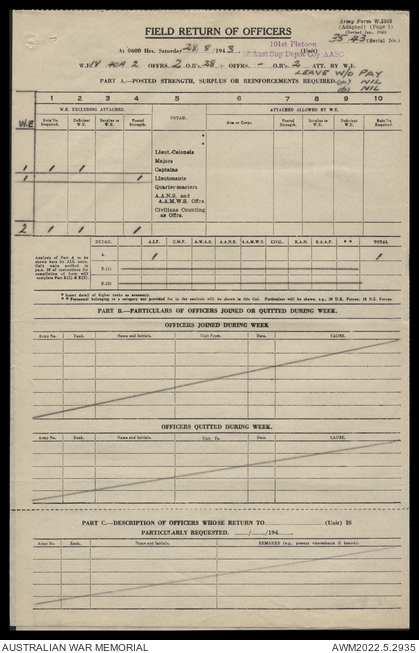 Army Form W.3008
(Adapted) (Page 1)
(Revised Jan., 1943)
FIELD RETURN OF OFFICERS
35-43 (Serial No.)
At 0600 Hrs. Saturday 28/8/1943. 101st Platoon (Unit)
Aust Sup Depot Coy AASC
W.E. IV 40A 2 OFFRS. 2 O.R's. 28 + OFFRS. - O.R's 2 ATT. BY W.E.
LEAVE W/O PAY
PART A.—POSTED STRENGTH, SURPLUS OR REINFORCEMENTS REQUIRED. (a) NIL
(b) NIL
1 2 3 4 5 6 7 8 9 10
W.E. W.E. EXCLUDING ATTACHED. DETAIL. ATTACHED ALLOWED BY W.E.
Rein't Required. Deficient W.E. Surplus to W.E. Posted Strength. Arm or Corps. Posted Strength. Surplus to W.E. Deficient W.E. Rein't Required.
Lieut.-Colonels
Majors
1 1 1 Captains
1 1 Lieutenants
Quarter-masters
A.A.N.S. and A.A.M.W.S. Offrs
Civilians Counting as Offrs.
2 1 1 1
DETAIL. A.I.F. C.M.F. A.W.A.S. A.A.N.S. A.A.M.W.S. CIVIL. R.A.N. R.A.A.F. * * TOTAL
Analysis of Part A to be shown here by ALL units. Only units notified in para. 28 of instructions for compilation of form will complete Part E(1) & E(2).
A. 1 1
E.(1)
E.(2)
* Insert detail of higher ranks as necessary.
* * Personnel belonging to a category not provided for in the analysis will be shown in this Col. Particulars will be shown, e.g., 20 U.K. Forces; 10 N.Z. Forces.
PART B.—PARTICULARS OF OFFICERS JOINED OR QUITTED DURING WEEK.
OFFICERS JOINED DURING WEEK
Army No. Rank. Name and Initials. Unit From. Date. CAUSE.
OFFICERS QUITTED DURING WEEK.
Army No. Rank. Name and Initials. Unit To. Date. CAUSE.
PART C.—DESCRIPTION OF OFFICERS WHOSE RETURN TO (Unit) IS
PARTICULARLY REQUESTED. / /194
Army No. Rank. Name and Initials. REMARKS (e.g., present whereabouts if known).
AUSTRALIAN WAR MEMORIAL AWM2022.5.2935